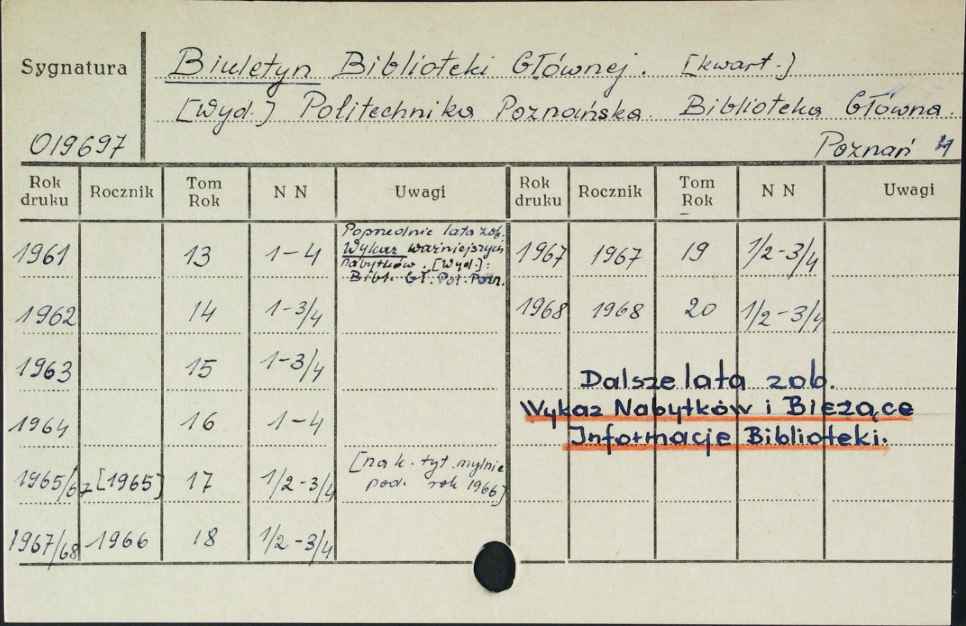 Sygnatura Biuletyn Biblioteki Głównej. [kwart.]
[Wyd.] Politechnika Poznańska. Biblioteka Główna.
019697 Poznań
Rok druku Rocznik Tom Rok N N Uwagi Rok druku Rocznik Tom Rok N N Uwagi
1961 13 1-4 Poprzednie lata zob. 1967 1967 19 1/2-3/4
Wykaz ważniejszych
nabytków. [Wyd.]:
Bibl. Gł. Pol. Pozn.
1962 14 1-3/4 1968 1968 20 1/2-3/4
1963 15 1-3/4
Dalsze lata zob.
Wykaz Nabytków i Bieżące
1964 16 1-4
Informacje Biblioteki.
1965/67 [1965] 17 1/2-3/4 [na k. tyt. mylnie
pod. rok 1966]
1967/68 1966 18 1/2-3/4